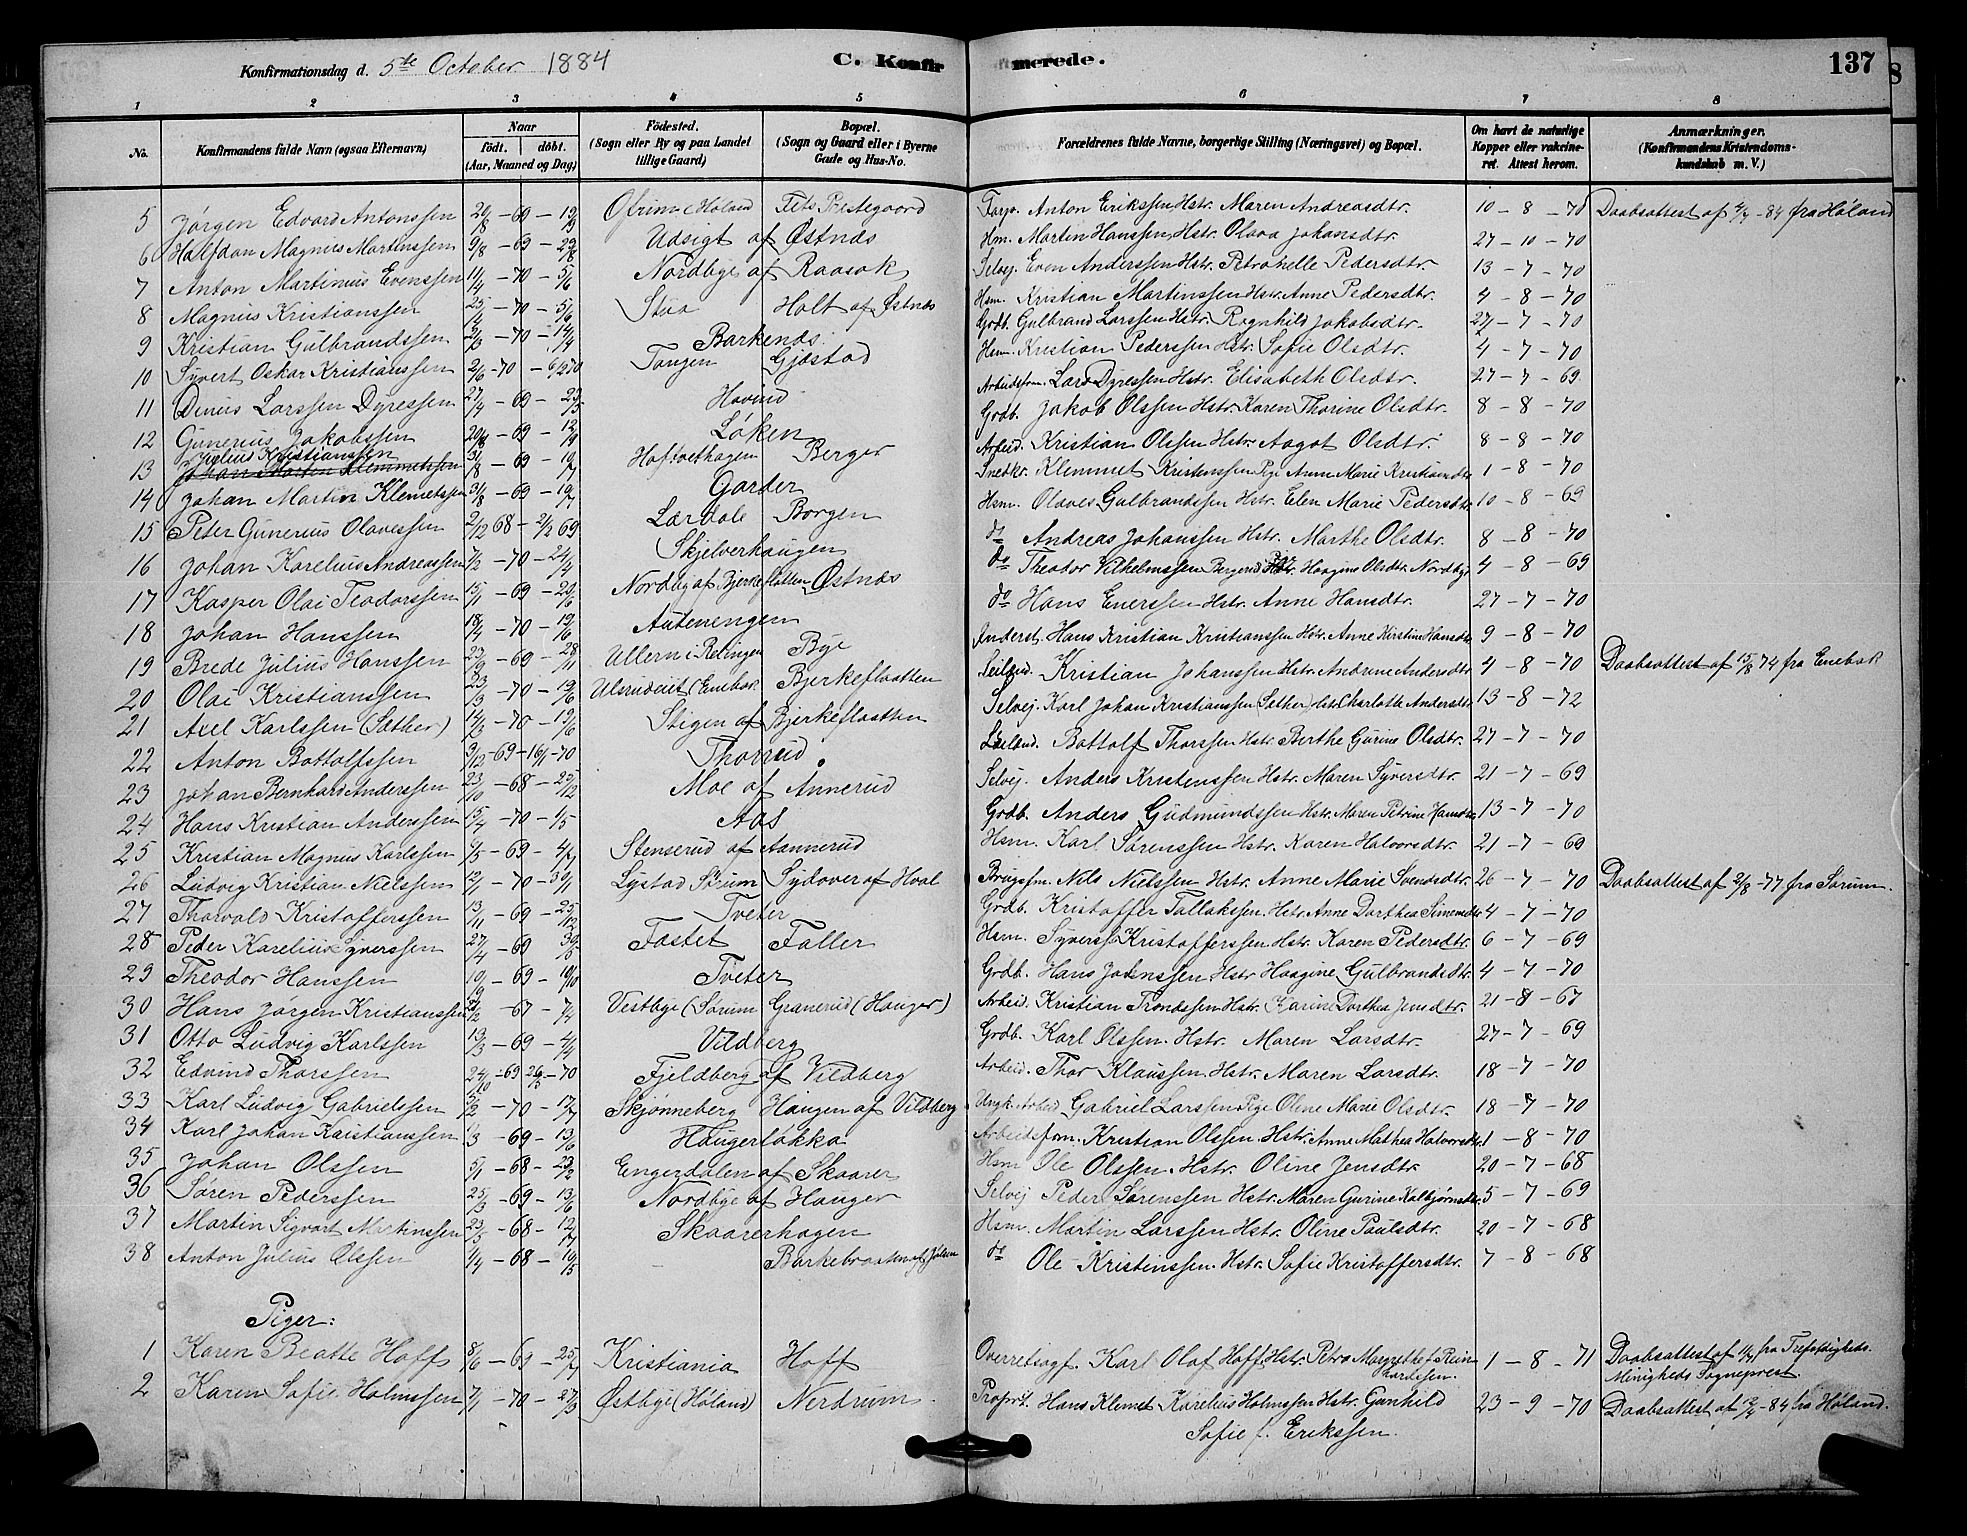 Konfirmationsdag d. 5te October 1884 C. Konfirmerede. 137
1 2 3 4 5 6 7 8
No. Konfirmandens fulde Navn (ogsaa Efternavn) Naar födt. döbt. (Aar, Maaned og Dag) Födested. (Sogn eller By og paa Landet tillige Gaard) Bopæl. (Sogn og Gaard eller i Byerne Gade og Hus-No. Forældrenes fulde Navne, borgerlige Stilling (Næringsvei) og Bopæl. Om havt de naturlige Kopper eller vakcineret. Attest herom. Anmærkninger. (Konfirmandens Kristendomskundskab m. V.)
5 Jørgen Edvard Antonssen 29/8 - 69 - 19/9 (Høland Fets Prestegaard Anton Erikssen Hstr. Maren Andreasdtr. 10 - 8 - 70 Daabsattest af 4/4 - 84 fra Høland
6 Halfdan Magnus Martinssen 9/8 - 69 - 29/8 Udsigt af Østnæs Hm. Martin Hanssen Hstr. Olava Johansdtr. 27 - 10 - 70
7 Anton Martinius Evenssen 11/4 - 70 - 5/6 Nordbye af Raasok Selvej. Even Anderssen Hstr. Petronelle Pedersdtr. 13 - 7 - 70
8 Magnus Kristianssen - 70 - 5/6 Stua Holt af Østnæs Hsm. Kristian Martinssen Hstr. Anne Pedersdtr. 4 - 8 - 70
9 Kristian Gulbrandssen 2/3 - 70 - 14/4 Barkenæs Grdb. Gulbrand Larssen Hstr. Ragnhild Jakobsdtr. 27 - 7 - 70
10 Syvert Oskar Kristianssen 2/6 - 70 - Tangen Gjæstad Hsm. Kristian Pederssen Hstr. Sofie Olsdtr. 4 - 7 - 70
11 Dinus Larssen Dyressen 27/4 - 69 - 23/5 Hovind Arbeidsfm. Lars Dyressen Hstr. Elisabeth Olsdtr. 27 - 7 - 69
12 Gunerius Jakobssen 20/8 - 69 - 12/9 Løken Grdb. Jakob Olssen Hstr. Karen Thorine Olsdtr. 8 - 8 - 70
Julius Kristianssen
13 Johan Martin Klemmetssen - 69 - 19/7 Berger Arbeid. Kristian Olssen Hstr. Aagot Olsdtr 8 - 8 - 70
14 Johan Martin Klemetssen 31/8 - 69 - 19/7 Garder Snedkr. Klemmet Kristenssen Pige Anne Marie Kristiansdtr 1 - 8 - 70
15 Peter Gunerius Olavessen 2/12 68 - 2/2 69 Lærdale Borgen Hsm. Olaves Gulbrandssen Hstr. Elen Marie Pedersdtr. 10 - 8 - 69
16 Johan Karelius Andreassen 7/2 - 70 - 24/4 Skjelverhaugen do Andreas Johanssen Hstr. Marthe Olsdtr. 8 - 8 - 70
17 Kasper Olai Teodorssen 15/1 - 69 - 20/6 Nordby af Bjerkeflaaten Østnæs do Theodor Vilhelmssen Haagine Olsdtr Nordbye 4 - 8 - 69
18 Johan Hanssen 18/4 - 70 - 19/6 Auteneingen do Hans Enerssen Hstr. Anne Hansdtr. 27 - 7 - 70
19 Brede Julius Hanssen 23/9 - 69 - 28/11 Ullern i Relingen Bye Inderst. Hans Kristian Kristianssen Hstr. Anne Kirstine Hansdtr 9 - 8 - 70
20 Olai Kristianssen 23/3 - 70 - 19/6 (Enebak Bjerkeflaatten Leilænd. Kristian Johanssen Hstr. Andrine Andersdtr 4 - 8 - 70 Daabsattest af 15/8 74 fra Enebak
21 Axel Karlssen (Sæther) 14/3 - 70 - 19/6 Stigen af Bjerkeflaatten Selvej. Karl Johan Kristianssen (Sether) Hstr Charlotte Andersdtr 13 - 8 - 72
22 Anton Bottolfssen 9/12 - 69 - 16/1 - 70 Thorrud Leilænd. Bottolf Thorssen Hstr. Berthe Gurine Olsdtr. 27 - 7 - 70
23 Johan Bernhard Anderssen 23/10 - 68 - 25/12 Moe af Annerud Selvej. Anders Kristenssen Hstr. Maren Syversdtr. 21 - 7 - 69
24 Hans Kristian Anderssen 15/4 - 70 - 1/5 Aas Grdb. Anders Gudmundssen Hstr. Maren Petrine Hansdtr 13 - 7 - 70
25 Kristian Magnus Karlssen 9/5 - 69 - 4/7 Stenserud af Aannerud Hsm. Karl Sørenssen Hstr. Karen Halvorsdtr. 21 - 7 - 69
26 Ludvig Kristian Nielssen 12/1 - 70 - 30/1 Lystad Sørum Sydover af Hval Brugsfm. Nils Nielssen Hstr. Anne Marie Svendsdtr. 26 - 7 - 70 Daabsattest af 2/8 - 77 fra Sørum.
27 Thorvald Kristofferssen 13/11 - 69 - 25/12 Tveter Grdb. Kristoffer Tallakssen Hstr. Anne Dorthea Simensdtr 4 - 7 - 70
28 Peder Karelius Syverssen 27/4 - 69 30/5 Fastet Faller Hsm. Syverss Kristofferssen Hstr. Karen Pedersdtr. 6 - 7 - 69
29 Theodor Hanssen 10/9 - 69 - 10/10 Tveter Grdb. Hans Hstr Haagine Gulbrandsdtr. 4 - 7 - 70
30 Hans Jørgen Kristianssen - 67 - 7/4 Vestbye (Sørum Granerud (Hauger) Arbeid. Kristian Trondssen Hstr. Karine Dorthea Jensdtr. 21 - 8 - 67
31 Otto Ludvig Karlssen 13/3 - 69 - 4/4 Vildberg Grdb. Karl Olssen. Hstr. Maren Larsdtr. 27 - 7 - 69
32 Edvind Thorssen 24/10 - 69 26/5 - 70 Fjeldberg af Vildberg Arbeid. Thor Klaussen Hstr. Maren Larsdtr. 18 - 7 - 70
33 Karl Ludvig Gabrielssen - 70 - 17/7 Skjønneberg Haugen af Vildberg Ungk. Arbeid Gabriel Larssen Pige Oline Marie Olsdtr. 18 - 7 - 70
34 Karl Johan Kristianssen 1/3 - 69 - 13/6 Haugerløkka Arbeidsfm. Kristian Olssen Hstr. Anne Mathea Halvorsdtr. 1 - 8 - 70
35 Johan Olssen 5/1 - 68 - 23/2 Engerdalen af Skaarer Hsm Ole Olssen. Hstr. Oline Jensdtr. 20 - 7 - 68
36 Søren Pederssen 25/3 - 69 - 13/6 Nordbye af Hauger Selvej Peder Sørenssen Hstr. Maren Gurine Kolbjørnsdtr. 5 - 7 - 69
37 Martin Sigvart Martinssen 23/5 - 68 - 12/7 Skaarerhagen Hsm. Martin Larssen Hstr. Oline Paulsdtr. 20 - 7 - 68
38 Anton Julius Olssen 1/4 - 68 - 10/5 Barkebraaten af Jølsen do Ole Kristinssen. Hstr. Sofie Kristoffersdtr. 7 - 8 - 68
Piger:
1 Karen Beatte Hoff 8/6 - 69 - 25/7 Kristiania Hoff Overretssagf. Karl Olaf Hoff Hstr. Petra Margrethe f. Rein 1 - 8 - 71 Daabsattest af fra Trefoldigheds
Karlssen. Minigheds Sogneprest.
2 Karen Sofie Holmssen 7/1 - 70 - 27/3 Østbye (Høland) Nerdrum. Proprt. Hans Klemet Karelius Holmssen Hstr. Gunhild 23 - 9 - 70 Daabsattest af - 84 fra Høland.
Sofie f. Erikssen.